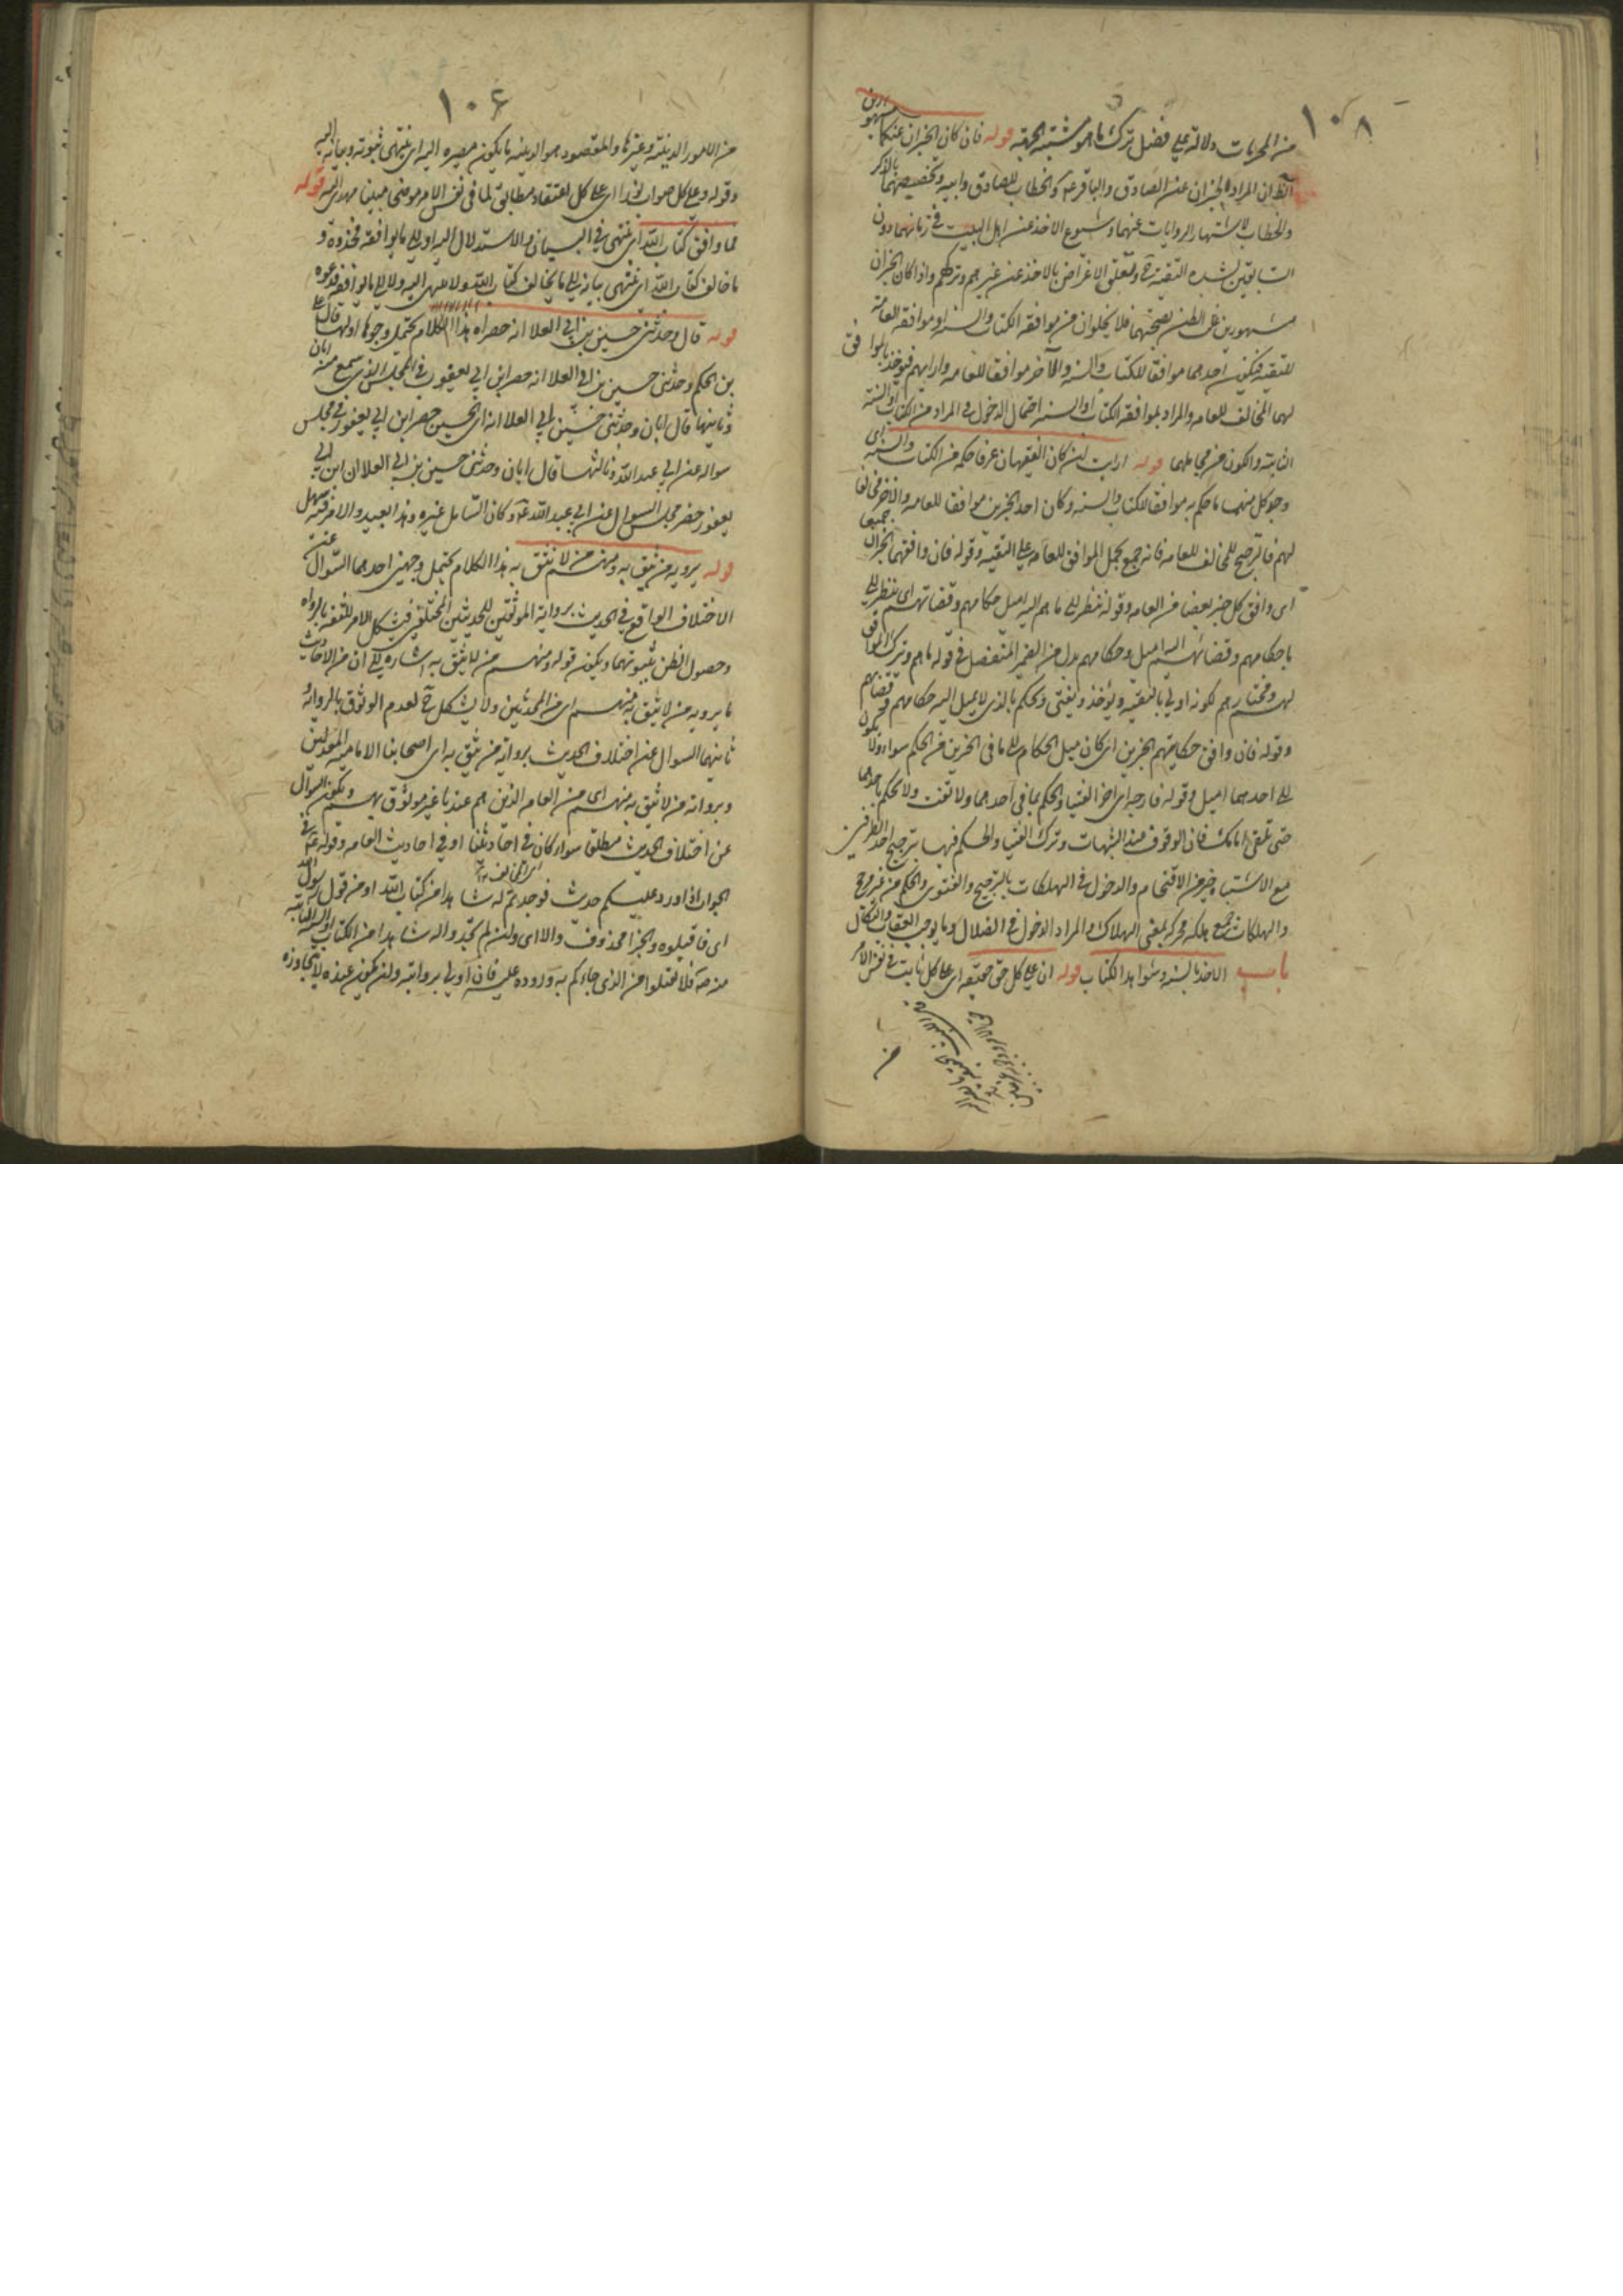 ١٠٨
من المجربات دلالة علي فضل ترك ما هو مشتبه الجهة قوله فان كان الخبران عنكما مشهورين
الظ ان المراد بالخبرين عن الصادق والباقر عه والخطاب للصادق وابيه وتخصيصهما بالذكر
والخطاب لاشتهار الروايات عنهما وشيوع الاخذ عن اهل البيت في زمانهما دون
السابقين لشدة التقية وتعلق الاغراض بالاخذ عن غيرهم وتركهم واذا كان الخبران
مشهورين غلب الظن بصحتهما فلا يخلوان من موافقة الكتاب والسنة او موافقة العامة
للتقية فيكون احدهما موافقا للكتاب والسنة والآخر موافقا للعامه وارايهم فيؤخذ بالموافق
لهما المخالف للعامه والمراد بموافقة الكتاب والسنة احتمال الدخول في المراد من الكتاب والسنة
الثابتة والكون من محاملهما قوله ارايت ان كان الفقيهان عرفا حكمه من الكتاب والسنة اي
وجد كل منهما ما حكم به موافقا للكتاب والسنة وكان احد الخبرين موافقا للعامه والاخر مخالفا
لهم فالترجيح للمخالف للعامه فانه جمع بحمل الموافق للعامه علي التقية وقوله فان وافقهما الخبران جميعا
اي وافق كل خبر بعضا من العامه وقوله ينظر الي ما هم اليه اميل حكامهم وقضاتهم اي ينظر الي
ما حكامهم وقضاتهم اليه اميل وحكامهم بدل من الضمير المنفصل في قوله ما هم وترك الموافق
لهم ومختارهم لكونه اولي بالتقية ويؤخذ ويفتي ويحكم بالذي لا يميل اليه حكامهم وقضاتهم
وقوله فان وافق حكامهم الخبرين اي كان ميل الحكام الي ما في الخبرين من الحكم سواء ولا يكون
الي احدهما اميل وقوله فارجه اي اخر الفتيا والحكم بما في احدهما ولا تفت ولا تحكم باحدهما
حتي تلقي امامك فان الوقوف عند الشبهات وترك الفتيا والحكم فيها بترجيح احد الطرفين
مع الاشتباه خير من الاقتحام والدخول في الهلكات بالترجيح والفتوي والحكم من غير مرجح
والهلكات جمع هلكة محركة بمعني الهلاك والمراد الدخول في الضلال وما يوجب العقاب والنكال
باب الاخذ بالسنة وشواهد الكتاب قوله ان علي كل حق حقيقة اي علي كل ثابت في نفس الامر
١٠٦
من الامور الدينية وغيرها والمقصود هو الدينيه ما يكون مصيره اليه اي ينتهي ثبوته وبيانه اليه
وقوله وعلي كل صواب نورا اي علي كل اعتقاد مطابق لما في نفس الامر موضح مبينا مهدي اليه قوله
فما وافق كتاب الله اي ينتهي في البيان والاستدلال اليه او الي ما يوافقه فخذوه و
ما خالف كتاب الله اي ينتهي بيانه الي ما يخالف كتاب الله ولا ينتهي اليه ولا الي ما يوافقه فدعوه
قوله قال وحدثني حسين بن ابي العلا انه حضر اه هذا الكلام يحتمل وجوها اولها قال علي
بن الحكم وحدثني حسين بن ابي العلا انه حضر ابن ابي يعفور في المجلس الذي سمع منه ابان
وثانيها قال ابان وحدثني حسين بن ابي العلا انه اي الحسين حضر ابن ابي يعفور في مجلس
سواله عن ابي عبد الله وثالثها قال ابان وحدثني حسين بن ابي العلا ان ابن ابي
يعفور حضر مجلس السوال عن ابي عبد الله عه وكان السائل غيره وهذا بعيد والامر فيه سهل
قوله يرويه من نثق به ومنهم من لا نثق به هذا الكلام يحتمل وجهين احدهما السوال عن
الاختلاف الواقع في الحديث برواية الموثقين للحديثين المختلفين فيشكل الامر للثقة بالرواه
وحصول الظن بثبوتهما ويكون قوله ومنهم من لا يثق به اشارة الي ان من الاحاديث
ما يرويه من لا يثق به منهم اي من المحدثين ولا يشكل ح لعدم الوثوق بالرواة
ثانيهما السوال عن اختلاف الحديث برواية من يثق به اي اصحابنا الاماميه المعدلين
وبرواته من لا يثق به منهم اي من العامه الذين هم عندنا غير موثوق بهم ويكون السوال
عن اختلاف الحديث مطلقا سواء كان في احاديثنا او في احاديث العامه وقوله عه في
الجواب اذا ورد عليكم حديث فوجدتم له شاهدا من كتاب الله او من قول رسول الله
اي فاقبلوه والجزا محذوف والا اي وان لم تجدوا له شاهدا من الكتاب والسنة الثابتة
منه ص فلا تقبلوا من الذي جاءكم به وروده عليه فانه اولي بروايته وان يكون عنده لا يتجاوزه